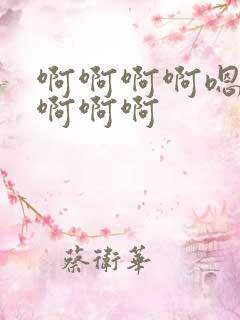 啊啊啊啊嗯
啊啊啊
蔡衛華